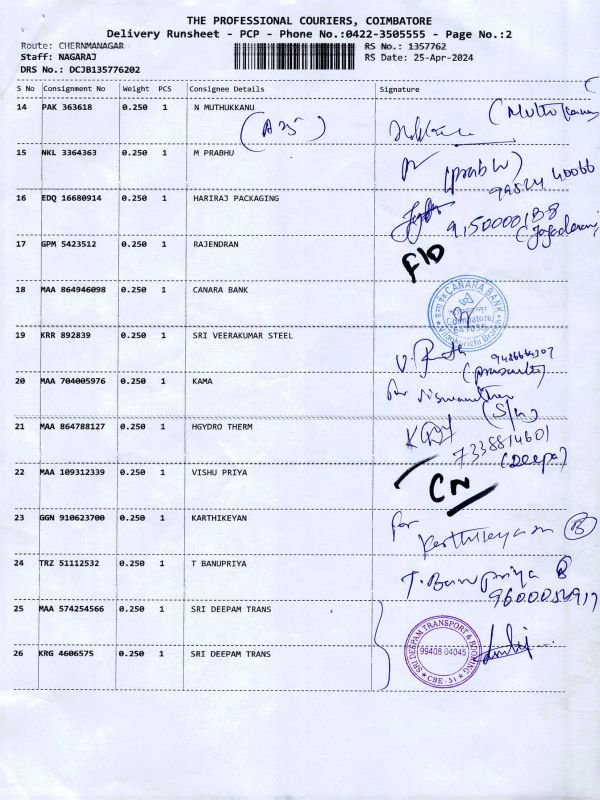 THE PROFESSIONAL COURIERS, COIMBATORE
Delivery Runsheet - PCP - Phone No.:0422-3505555 - Page No.:2
Route: CHERNMANAGAR RS No.: 1357762
Staff: NAGARAJ RS Date: 25-Apr-2024
DRS No.: DCJB135776202
S No Consignment No Weight PCS Consignee Details Signature
14 PAK 363618 0.250 1 N MUTHUKKANU
15 NKL 3364363 0.250 1 M PRABHU
(prabu)
99524 40066
16 EDQ 16680914 0.250 1 HARIRAJ PACKAGING
9150000188
17 GPM 5423512 0.250 1 RAJENDRAN
F/D
18 MAA 864946098 0.250 1 CANARA BANK
CANARA BANK
Coimbatore
641035
Vilankurichi Branch
19 KRR 892839 0.250 1 SRI VEERAKUMAR STEEL
20 MAA 704005976 0.250 1 KAMA
for
(S/w)
21 MAA 864788127 0.250 1 HGYDRO THERM
7338814601
(Deepa)
22 MAA 109312339 0.250 1 VISHU PRIYA
CN
23 GGN 910623700 0.250 1 KARTHIKEYAN
for
Karthikeyan
24 TRZ 51112532 0.250 1 T BANUPRIYA
T. Banu priya
25 MAA 574254566 0.250 1 SRI DEEPAM TRANS
SRI DEEPAM TRANSPORT & BOOKING
99408 04045
CBE - 31
26 KRG 4606575 0.250 1 SRI DEEPAM TRANS